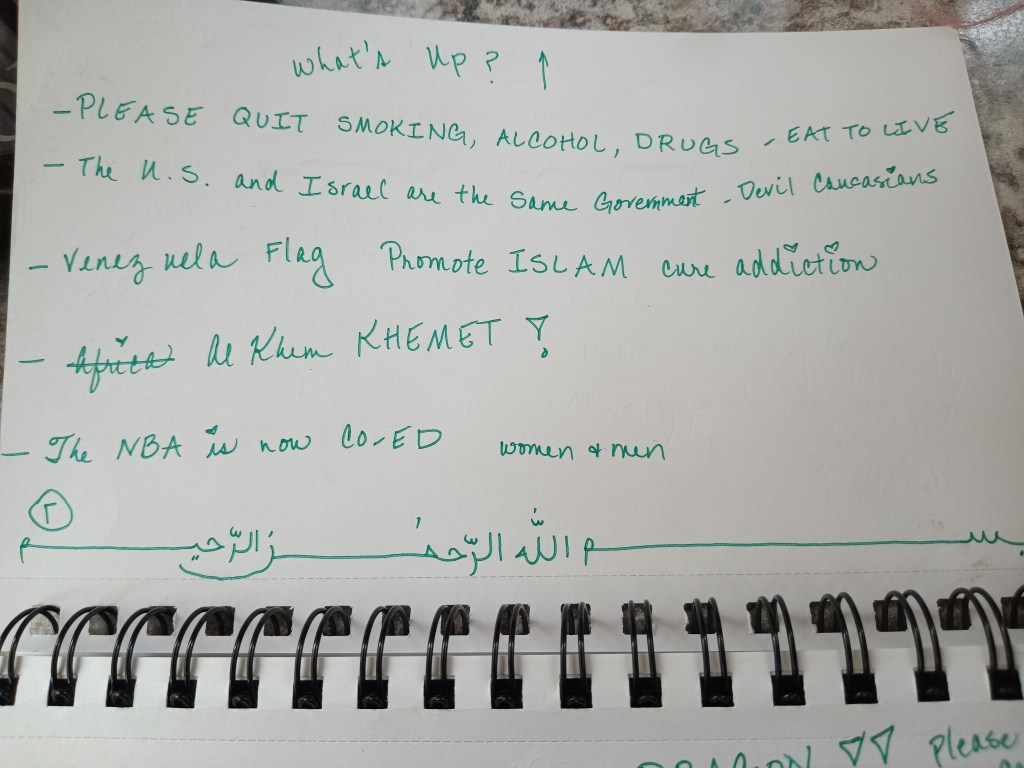 What's Up? ↑
- PLEASE QUIT SMOKING, ALCOHOL, DRUGS - EAT TO LIVE
- The U.S. and Israel are the Same Government - Devil Caucasians
- Venezuela Flag Promote ISLAM cure addiction
- Africa Al Khem KHEMET !
- The NBA is now CO-ED women & men
٢
بســــم اللّٰه الرّحمٰـــن الرّحيــــم
DRAGON ▽▽ please